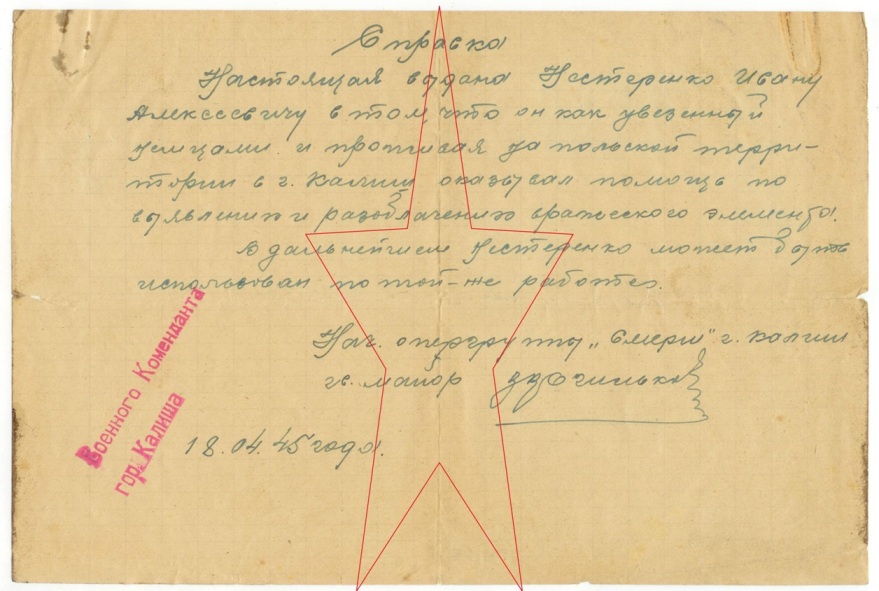 Справка
Настоящая выдана Нестеренко Ивану
Алексеевичу в том, что он как увезенный
немцами и проживая на польской терри-
тории в г. Калиш оказывал помощь по
выявлению и разоблачению вражеского элемента.
В дальнейшем Нестеренко может быть
использован по той-же работе.
Нач. опергруппы „Смерш" г. Калиш
гв. майор
Военного Коменданта
гор. Калиша
18.04.45 года.